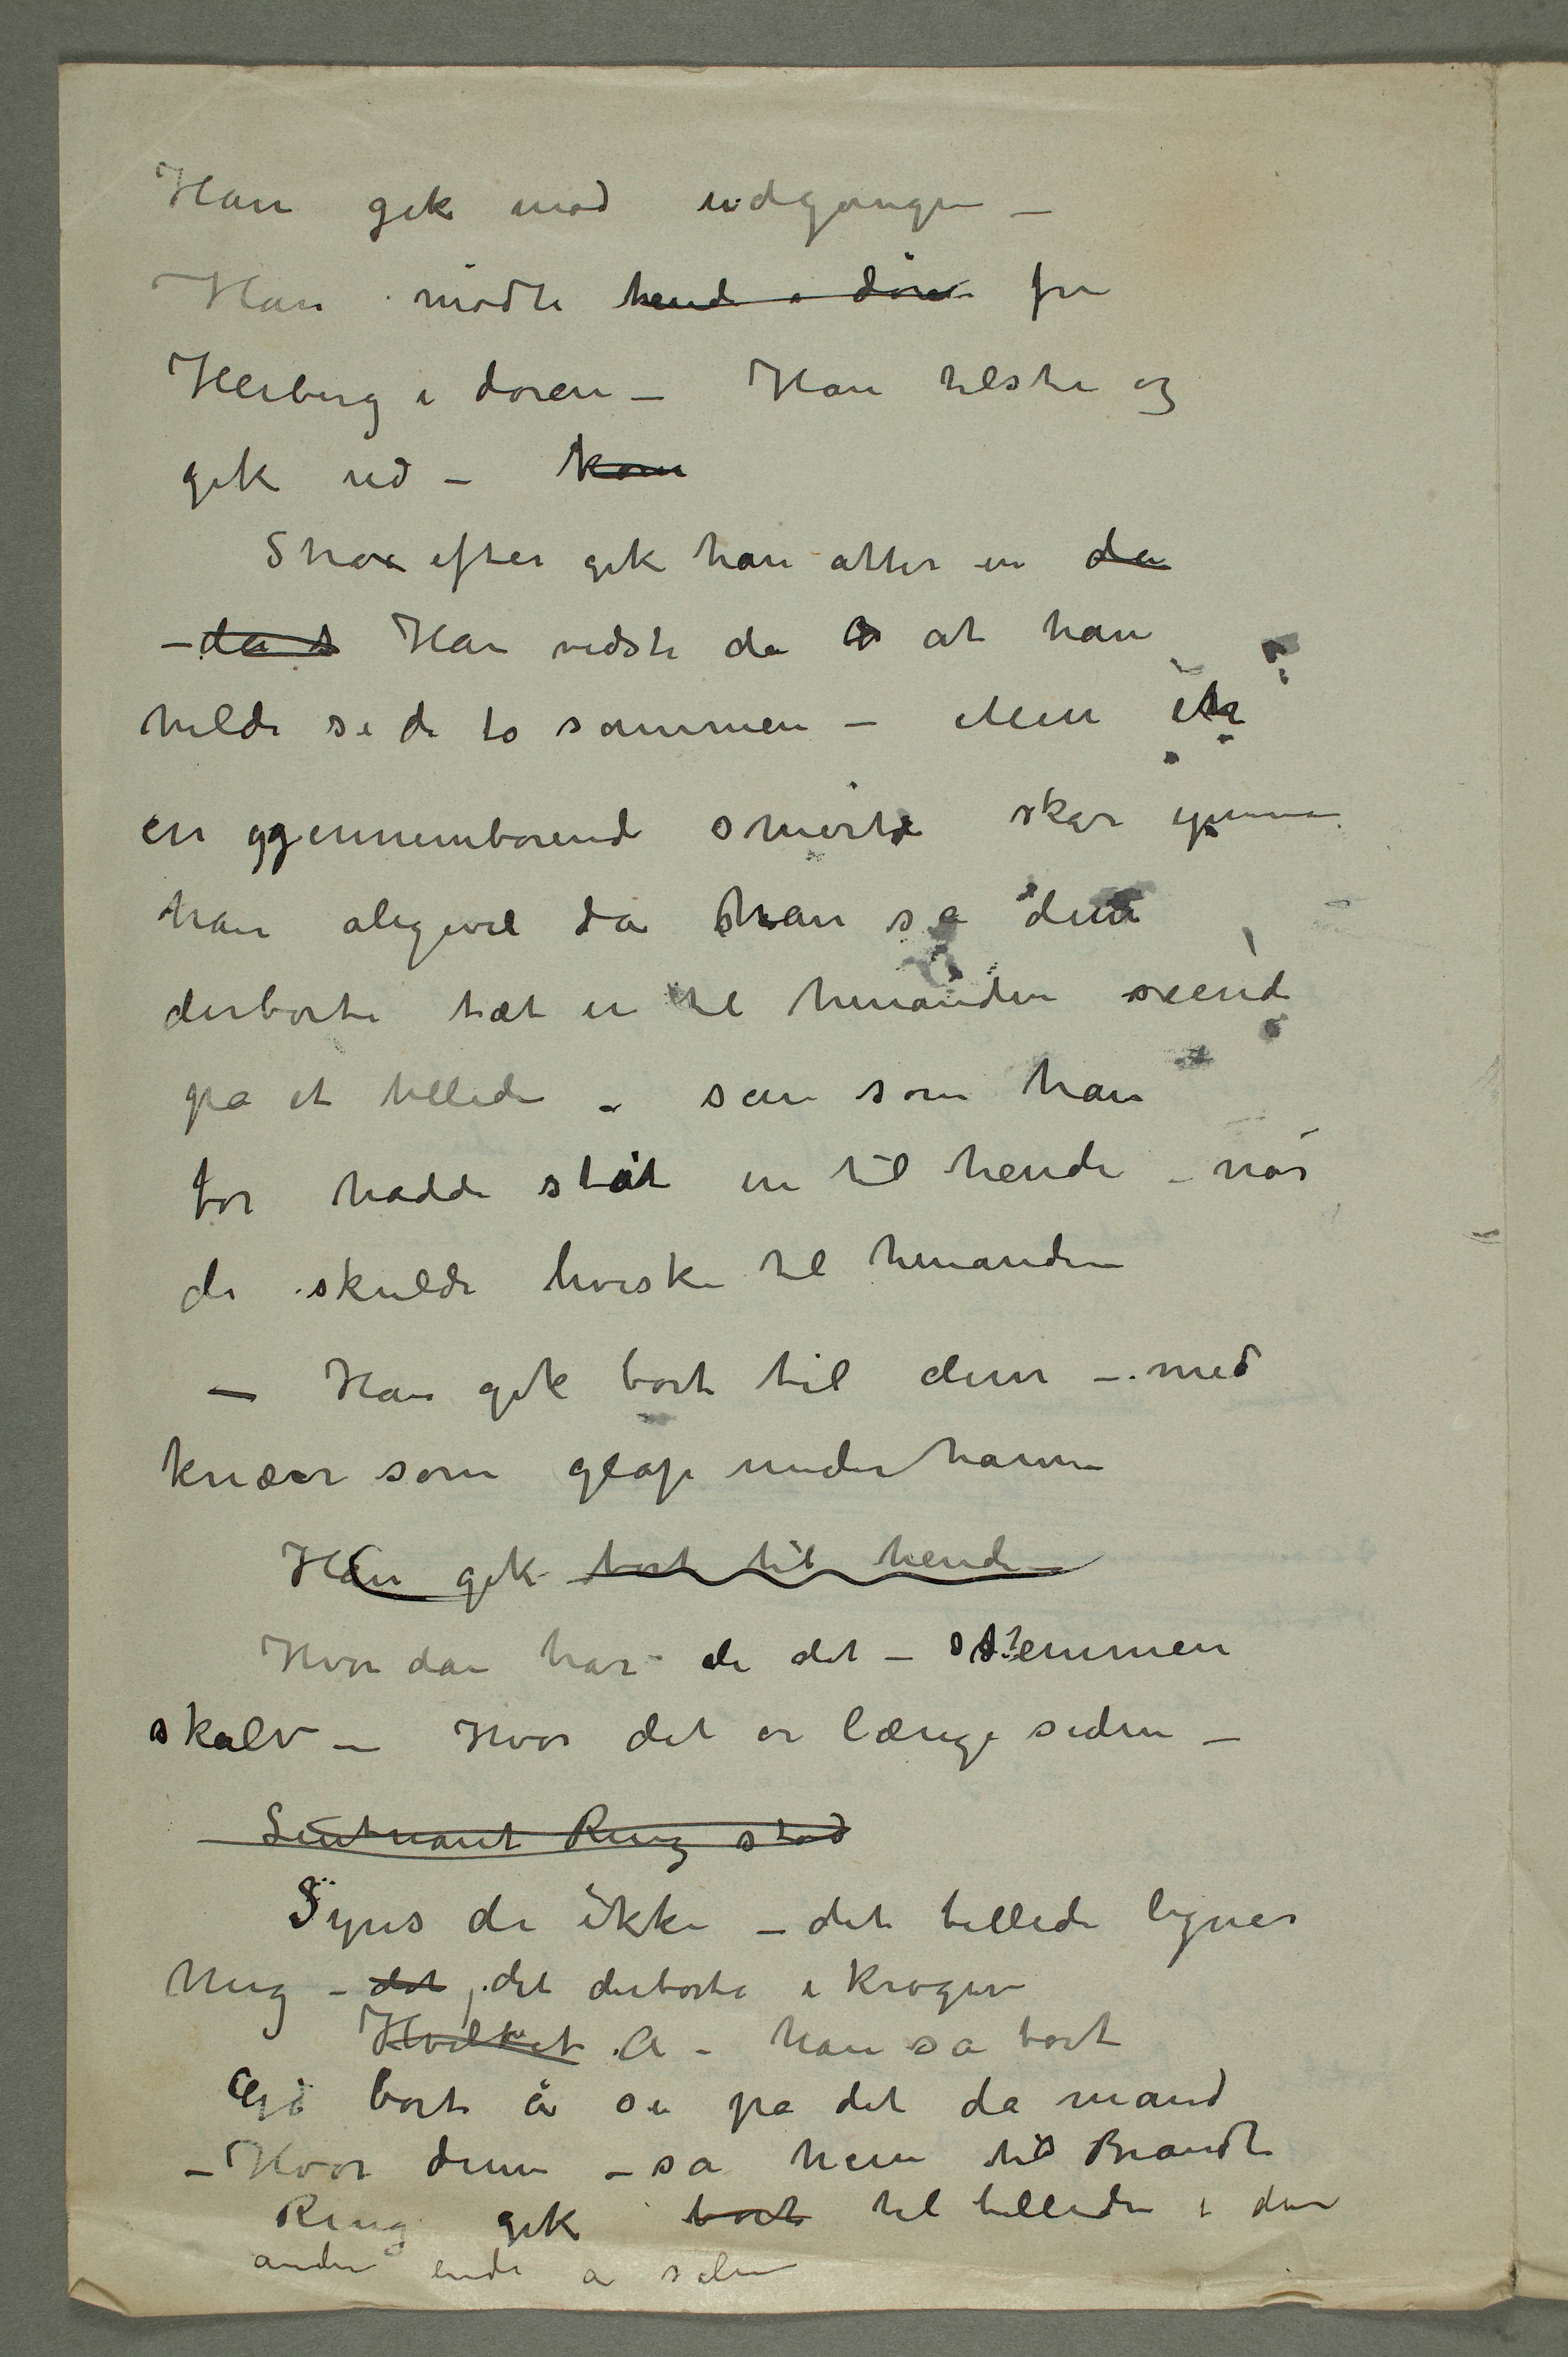 Han gik mod udgangen –
Han mødte hende i døren fru
Heiberg i døren – Han hilste og
gik ud – kom
Strax efter gik han atter in da
– da s Han vidste da at han
vilde se de to sammen – Men
en gjennemborende smerte skar gjennem
han aligevel da han så dem
derborte tæt in til hinanden seende
på et billede – san som han
før hadde ståt in til hende – når
de skulde hviske til hinanden
– Han gik bort til dem – med
knæer som glap under ham
Han gik bort til hende
Hvordan har de det – stemmen
skalv – Hvor det er længe siden –
– Leutnant Ring stod
Syns de ikke – det billede ligner
mig – det, det derborte i krogen
Hvilket A – han så bort
Gå bort å se på det da mand
– Hvor denn – sa hun til Brandt
Ring gik bort til billedet i den
anden ende a salen